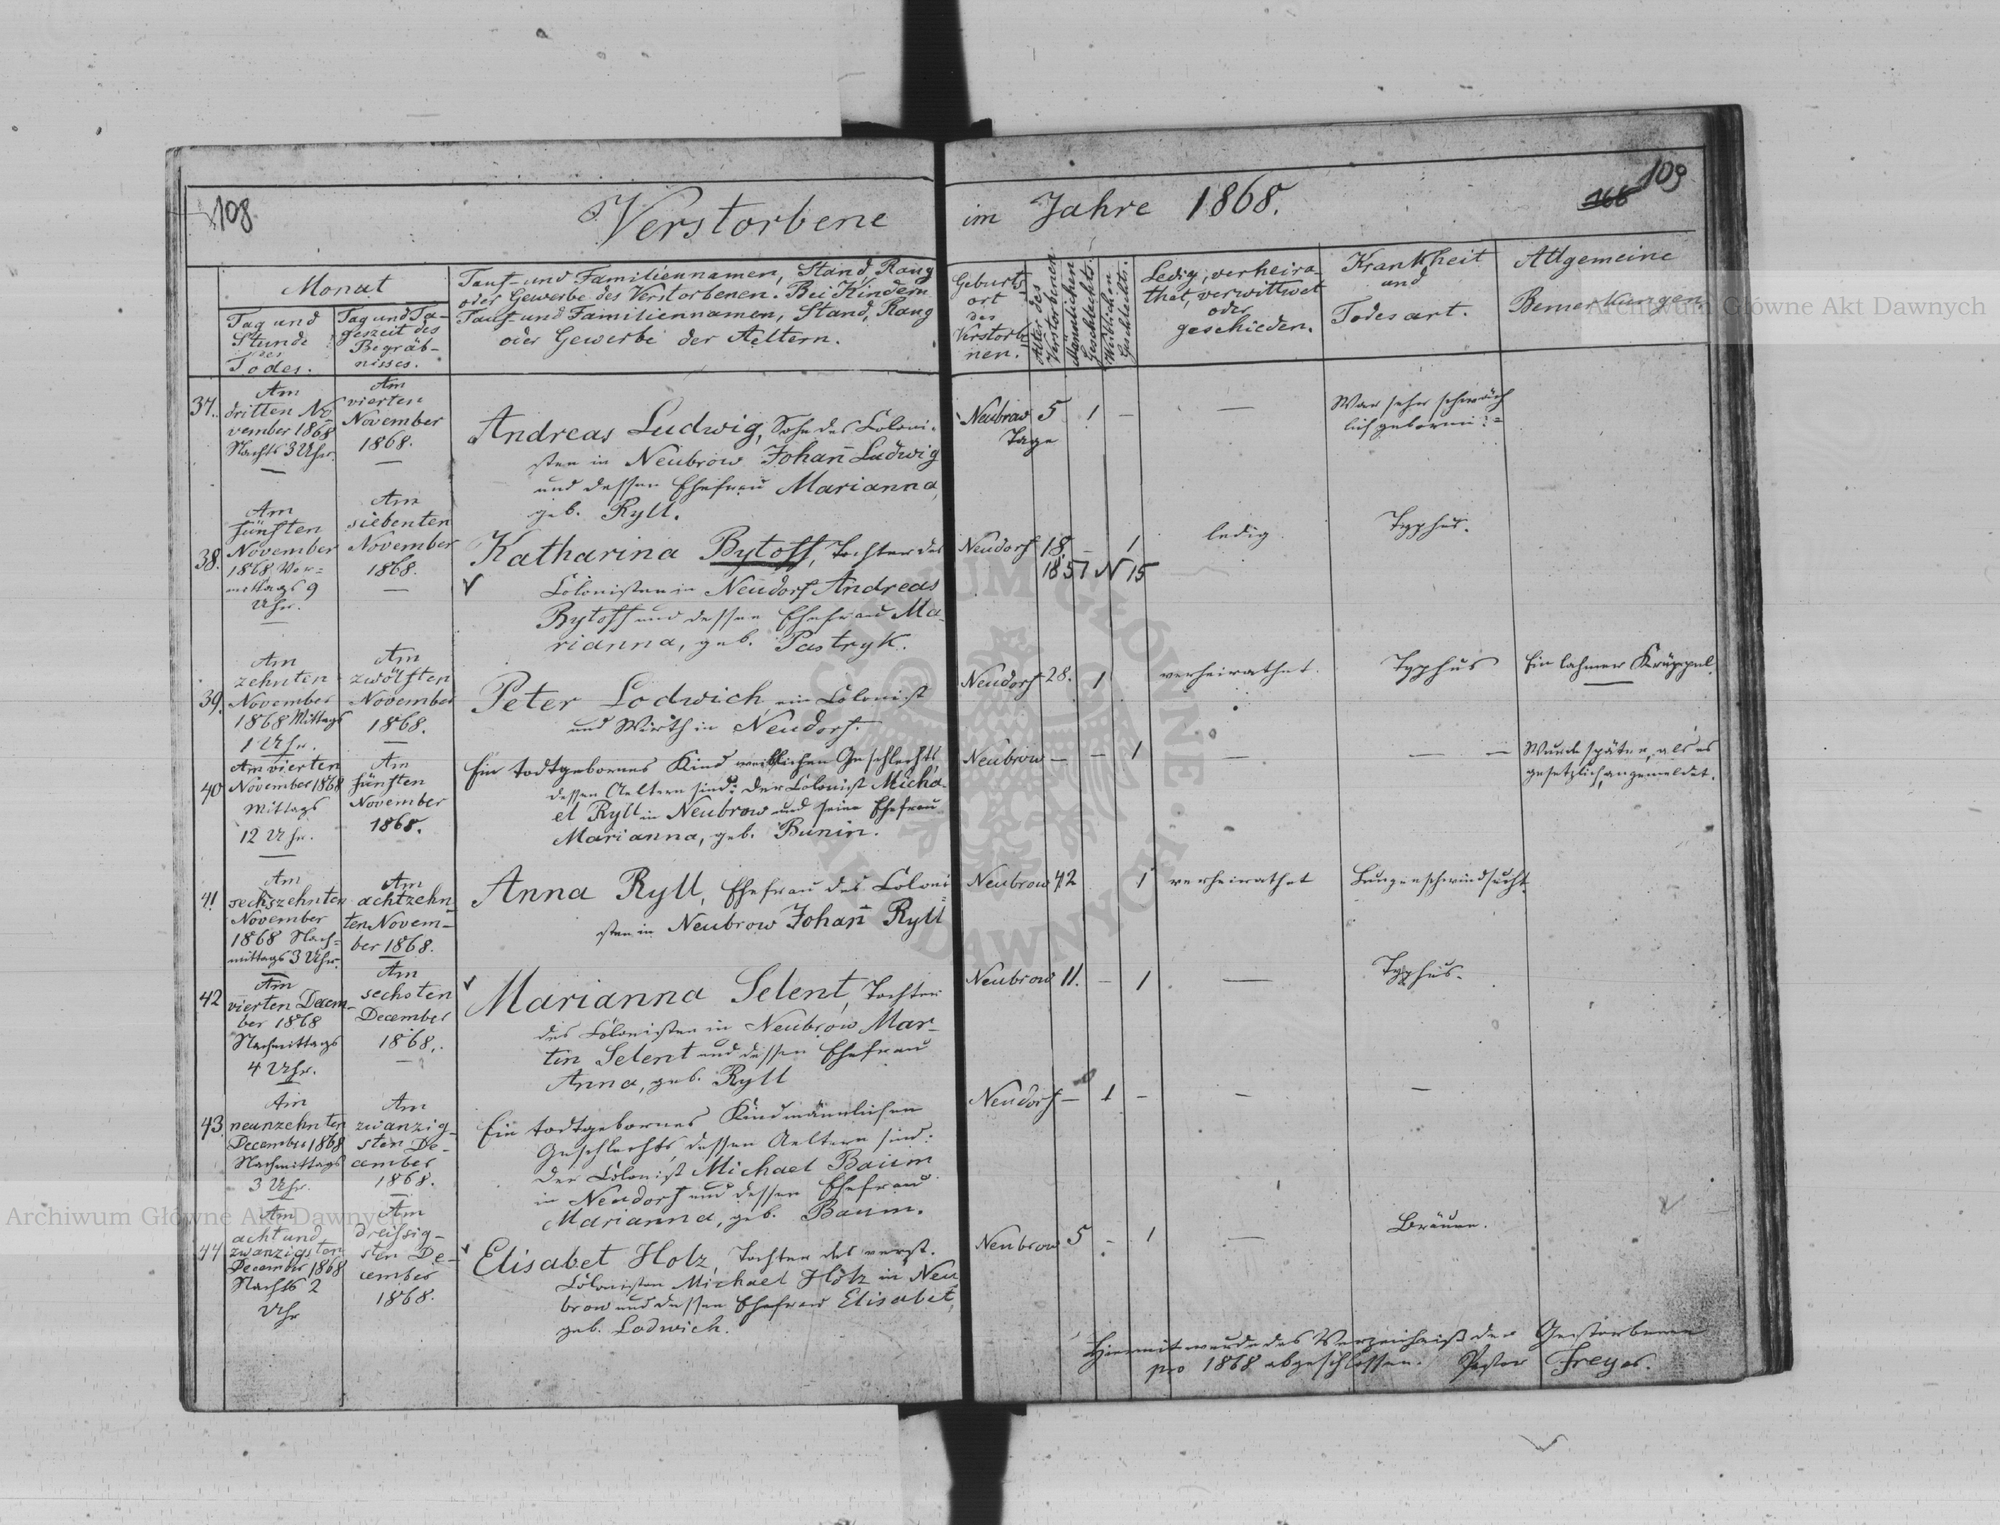 108
Verstorbene im Jahre 1868.
166
109
Monat
Tag und
Stunde
des
Todes.
Tag und Ta-
geszeit des
Begräb-
nisses.
Tauf- und Familiennamen, Stand, Rang
oder Gewerbe des Verstorbenen. Bei Kindern
Tauf- und Familiennamen, Stand, Rang
oder Gewerbe der Aeltern.
Geburts
ort
des
Verstorbe
nen.
Alter des
Verstorbenen
Männlichen
Geschlechts.
Weiblichen
Geschlechts.
Ledig, verheira-
thet, verwittwet
oder
geschieden.
Krankheit
und
Todesart.
Allgemeine
Bemerkungen
37.
Am
dritten No
vember 1868
Nachts 3 Uhr.
Am
vierten
November
1868.
Andreas Ludwig, Sohn des Coloni-
sten in Neubrow Johan̄ Ludwig
und dessen Ehefrau Marianna,
geb. Ryll.
Neubrow 5 1 –
Tage
—
War sehr schwäch
lich geboren
38.
Am
fünften
November
1868 Vor-
mittags 9
Uhr.
Am
siebenten
November
1868.
Katharina Bytoff, Tochter des
Colonisten in Neudorf Andreas
Bytoff und dessen Ehefrau Ma-
rianna, geb. Pastryk.
Neudorf 18. – 1
1851 N 15
ledig
Typhus.
39.
Am
zehnten
November
1868 Mittags
1 Uhr.
Am
zwölften
November
1868.
Peter Lodwich, ein Colonist
und Wirth in Neudorf.
Neudorf 28. 1
verheirathet
Typhus
Ein lahmer Krüppel.
40
Am vierten
November 1868
Mittags
12 Uhr.
Am
fünften
November
1868.
Ein todtgebornes Kind weiblichen Geschlechts,
dessen Aeltern sind: der Colonist Micha-
el Ryll in Neubrow und seine Ehefrau
Marianna, geb. Bunin.
Neubrow – – 1
—
—
Wurde später, als es
gesetzlich, angemeldet.
41.
Am
sechszehnten
November
1868 Nach-
mittags 3 Uhr.
Am
achtzehn
ten Novem-
ber 1868.
Anna Ryll, Ehefrau des Coloni
sten in Neubrow Johan̄ Ryll
Neubrow 42 1
verheirathet
Lungenschwindsucht
42
Am
vierten Decem-
ber 1868
Nachmittags
4 Uhr.
Am
sechsten
December
1868.
Marianna Selent, Tochter
des Colonisten in Neubrow Mar-
tin Selent und dessen Ehefrau
Anna, geb. Ryll
Neubrow 11. – 1
—
Typhus.
43
Am
neunzehnten
December 1868
Nachmittags
3 Uhr.
Am
zwanzig-
sten De-
cember
1868.
Ein todtgebornes Kind männlichen
Geschlechts, dessen Aeltern sind:
der Colonist Michael Baum
in Neudorf und dessen Ehefrau
Marianna, geb. Baum.
Neudorf – 1 –
–
–
44
Am
acht und
zwanzigsten
December 1868
Nachts 2
Uhr
Am
dreissig-
sten De-
cember
1868.
Elisabet Holz, Tochter des verst.
Colonisten Michael Holz in Neu
brow und dessen Ehefrau Elisabet,
geb. Lodwich.
Neubrow 5 – 1
—
Bräune.
Hiermit wurde das Verzeichniß der Gestorbenen
pro 1868 abgeschlossen. Pastor Freyer.
Archiwum Główne Akt Dawnych
Archiwum Główne Akt Dawnych
ARCHIWUM GŁÓWNE AKT DAWNYCH